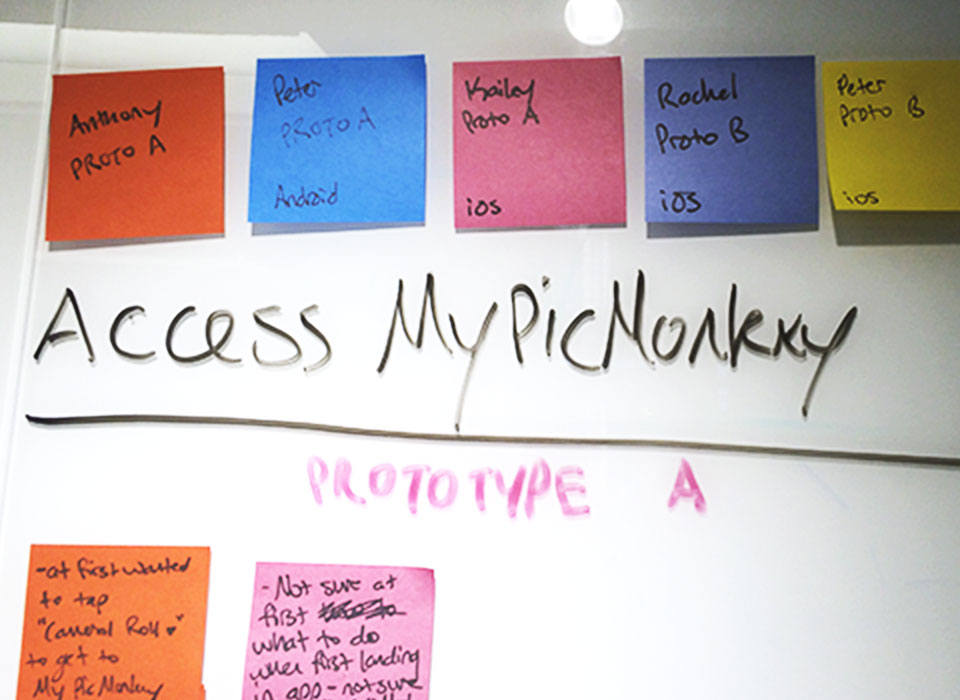 Anthony
PROTO A
Peter
PROTO A
Android
Kailey
Proto A
ios
Rachel
Proto B
iOS
Peter
Proto B
ios
Access MyPicMonkey
PROTOTYPE A
-at first wanted
to tap
"Camera Roll
to get to
My PicMonkey
- Not sure at
first
what to do
when first landing
in app - not sure